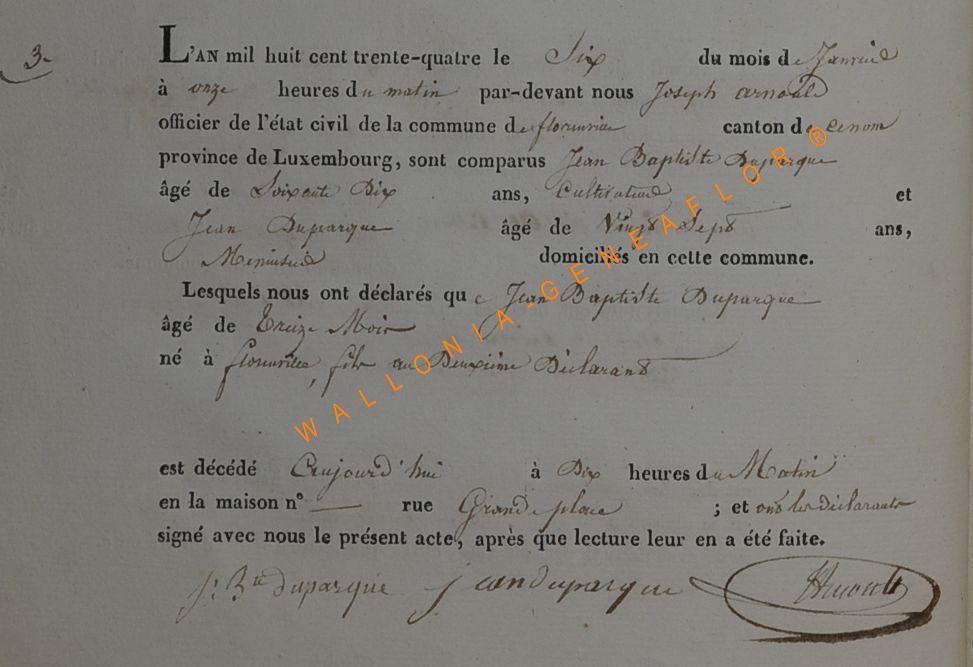 3.
L'AN mil huit cent trente-quatre le Six du mois de Janvier
à onze heures du matin par-devant nous Joseph arnould
officier de l'état civil de la commune de florenville canton de idem
province de Luxembourg, sont comparus Jean Baptiste Duparque
âgé de Soixante Dix ans, Cultivateur et
Jean Duparque âgé de Vingt Sept ans,
Menuisier domiciliés en cette commune.
Lesquels nous ont déclarés que Jean Baptiste Duparque
âgé de Treize Mois
né à florenville, fils au Deuxième Déclarant
est décédé Cejourd'hui à Dix heures du Matin
en la maison n° rue Grand place ; et ont les déclarants
signé avec nous le présent acte, après que lecture leur en a été faite.
J: Bte duparque jean duparque
WALLONIA-GENEAFLOR®